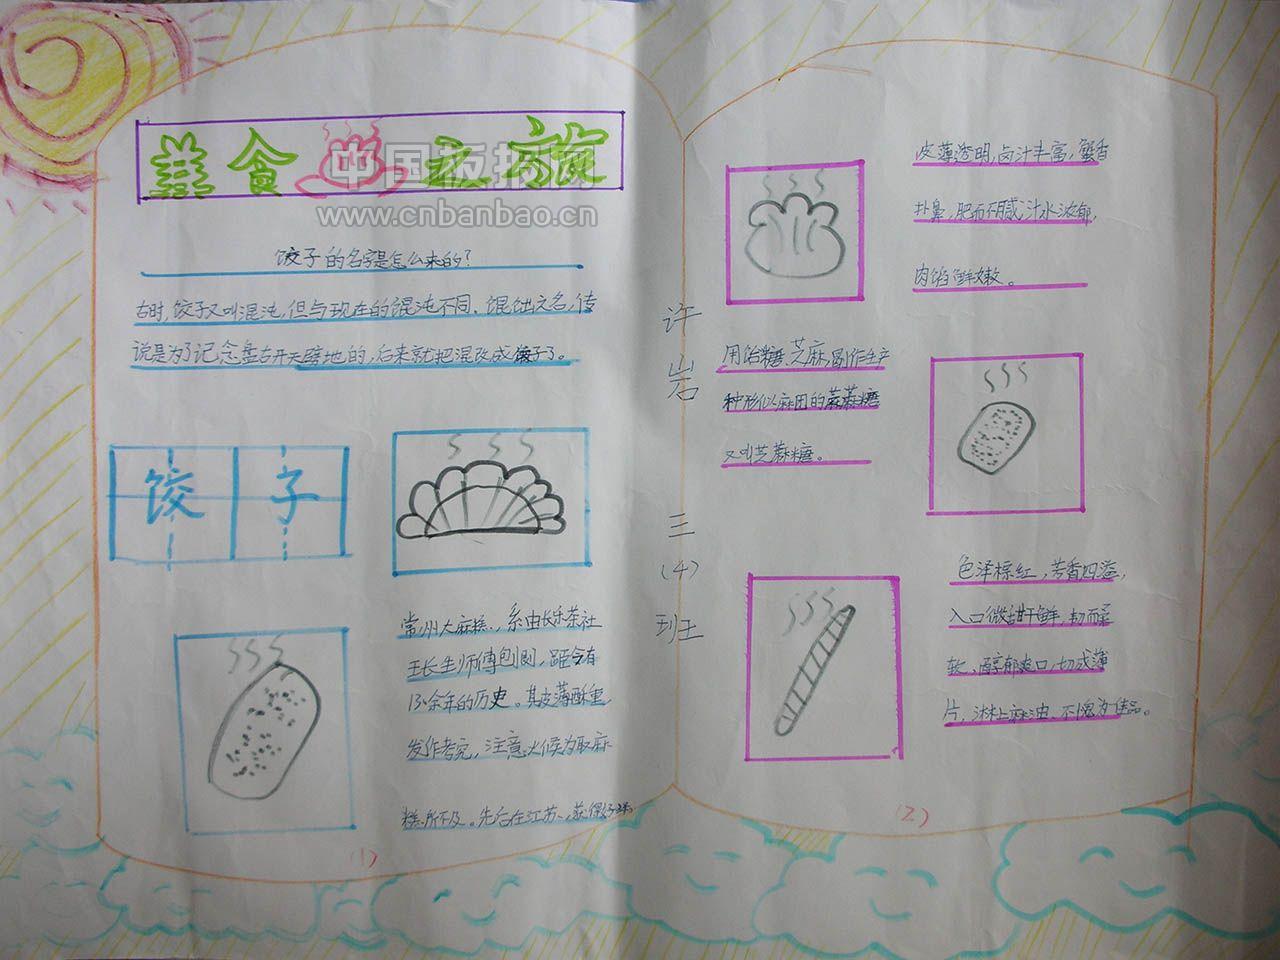 美食之旅
中国板报网
www.cnbanbao.cn
饺子的名字是怎么来的?
古时,饺子又叫混沌,但与现在的馄沌不同、馄饨之名,传
说是为了记念盘古开天辟地的,后来就把混改成饺子了。
饺子
常州大麻糕、系由长乐茶社
王长生师傅包圆,距今有
余年的历史。其皮薄酥重,
发作考究,注意火候为取麻
糕所不及。先后在江苏、获得好评
(1)
许岩
三
(4)
班
皮薄透明,卤汁丰富,蟹香
扑鼻,肥而不腻,汁水浓郁,
肉馅鲜嫩。
用饴糖、芝麻,制作生产
种形似麻团的蔴蔴糖
又叫芝蔴糖。
色泽棕红,芳香四溢,
入口微甜干鲜,韧而柔
软、醇郁爽口,切成薄
片,淋上麻油、不愧为佳品。
(2)